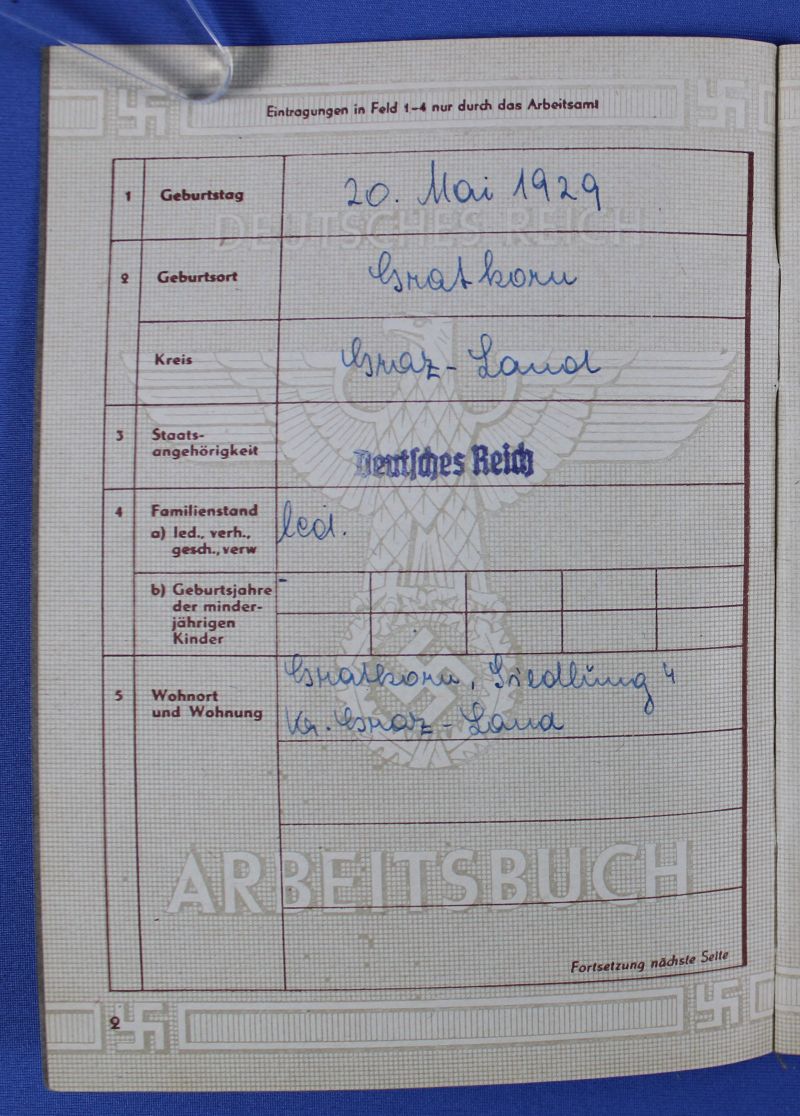 Eintragungen in Feld 1-4 nur durch das Arbeitsamt
1 Geburtstag 20. Mai 1929
DEUTSCHES REICH
2 Geburtsort Gratkorn
Kreis Graz-Land
3 Staats-
angehörigkeit Deutsches Reich
4 Familienstand led.
a) led., verh.,
gesch., verw
b) Geburtsjahre -
der minder-
jährigen
Kinder
Gratkorn, Siedlung 4
5 Wohnort
und Wohnung Kr. Graz-Land
ARBEITSBUCH
Fortsetzung nächste Seite
2